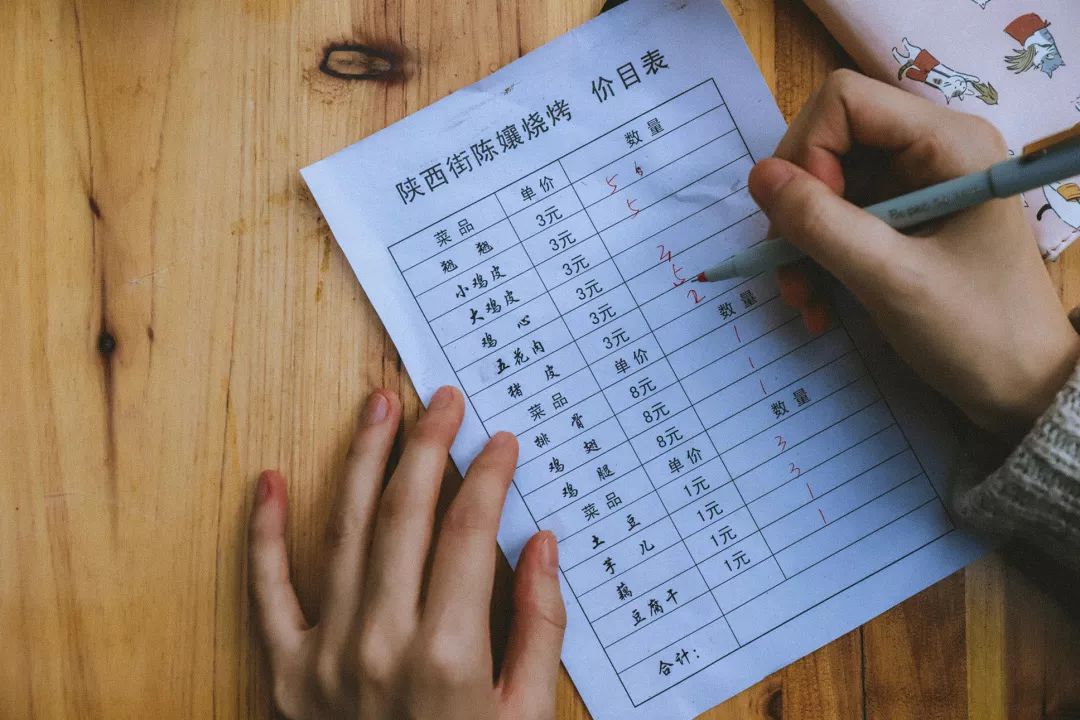 陕西街陈孃烧烤 价目表
菜品 单价 数量
翘翘 3元 5
小鸡皮 3元 5
大鸡皮 3元
鸡心 3元 3
五花肉 3元 5
猪皮 3元 2
菜品 单价 数量
排骨 8元 1
鸡翅 8元 1
鸡腿 8元 1
菜品 单价 数量
土豆 1元 3
芋儿 1元 3
藕 1元 1
豆腐干 1元 1
合计: